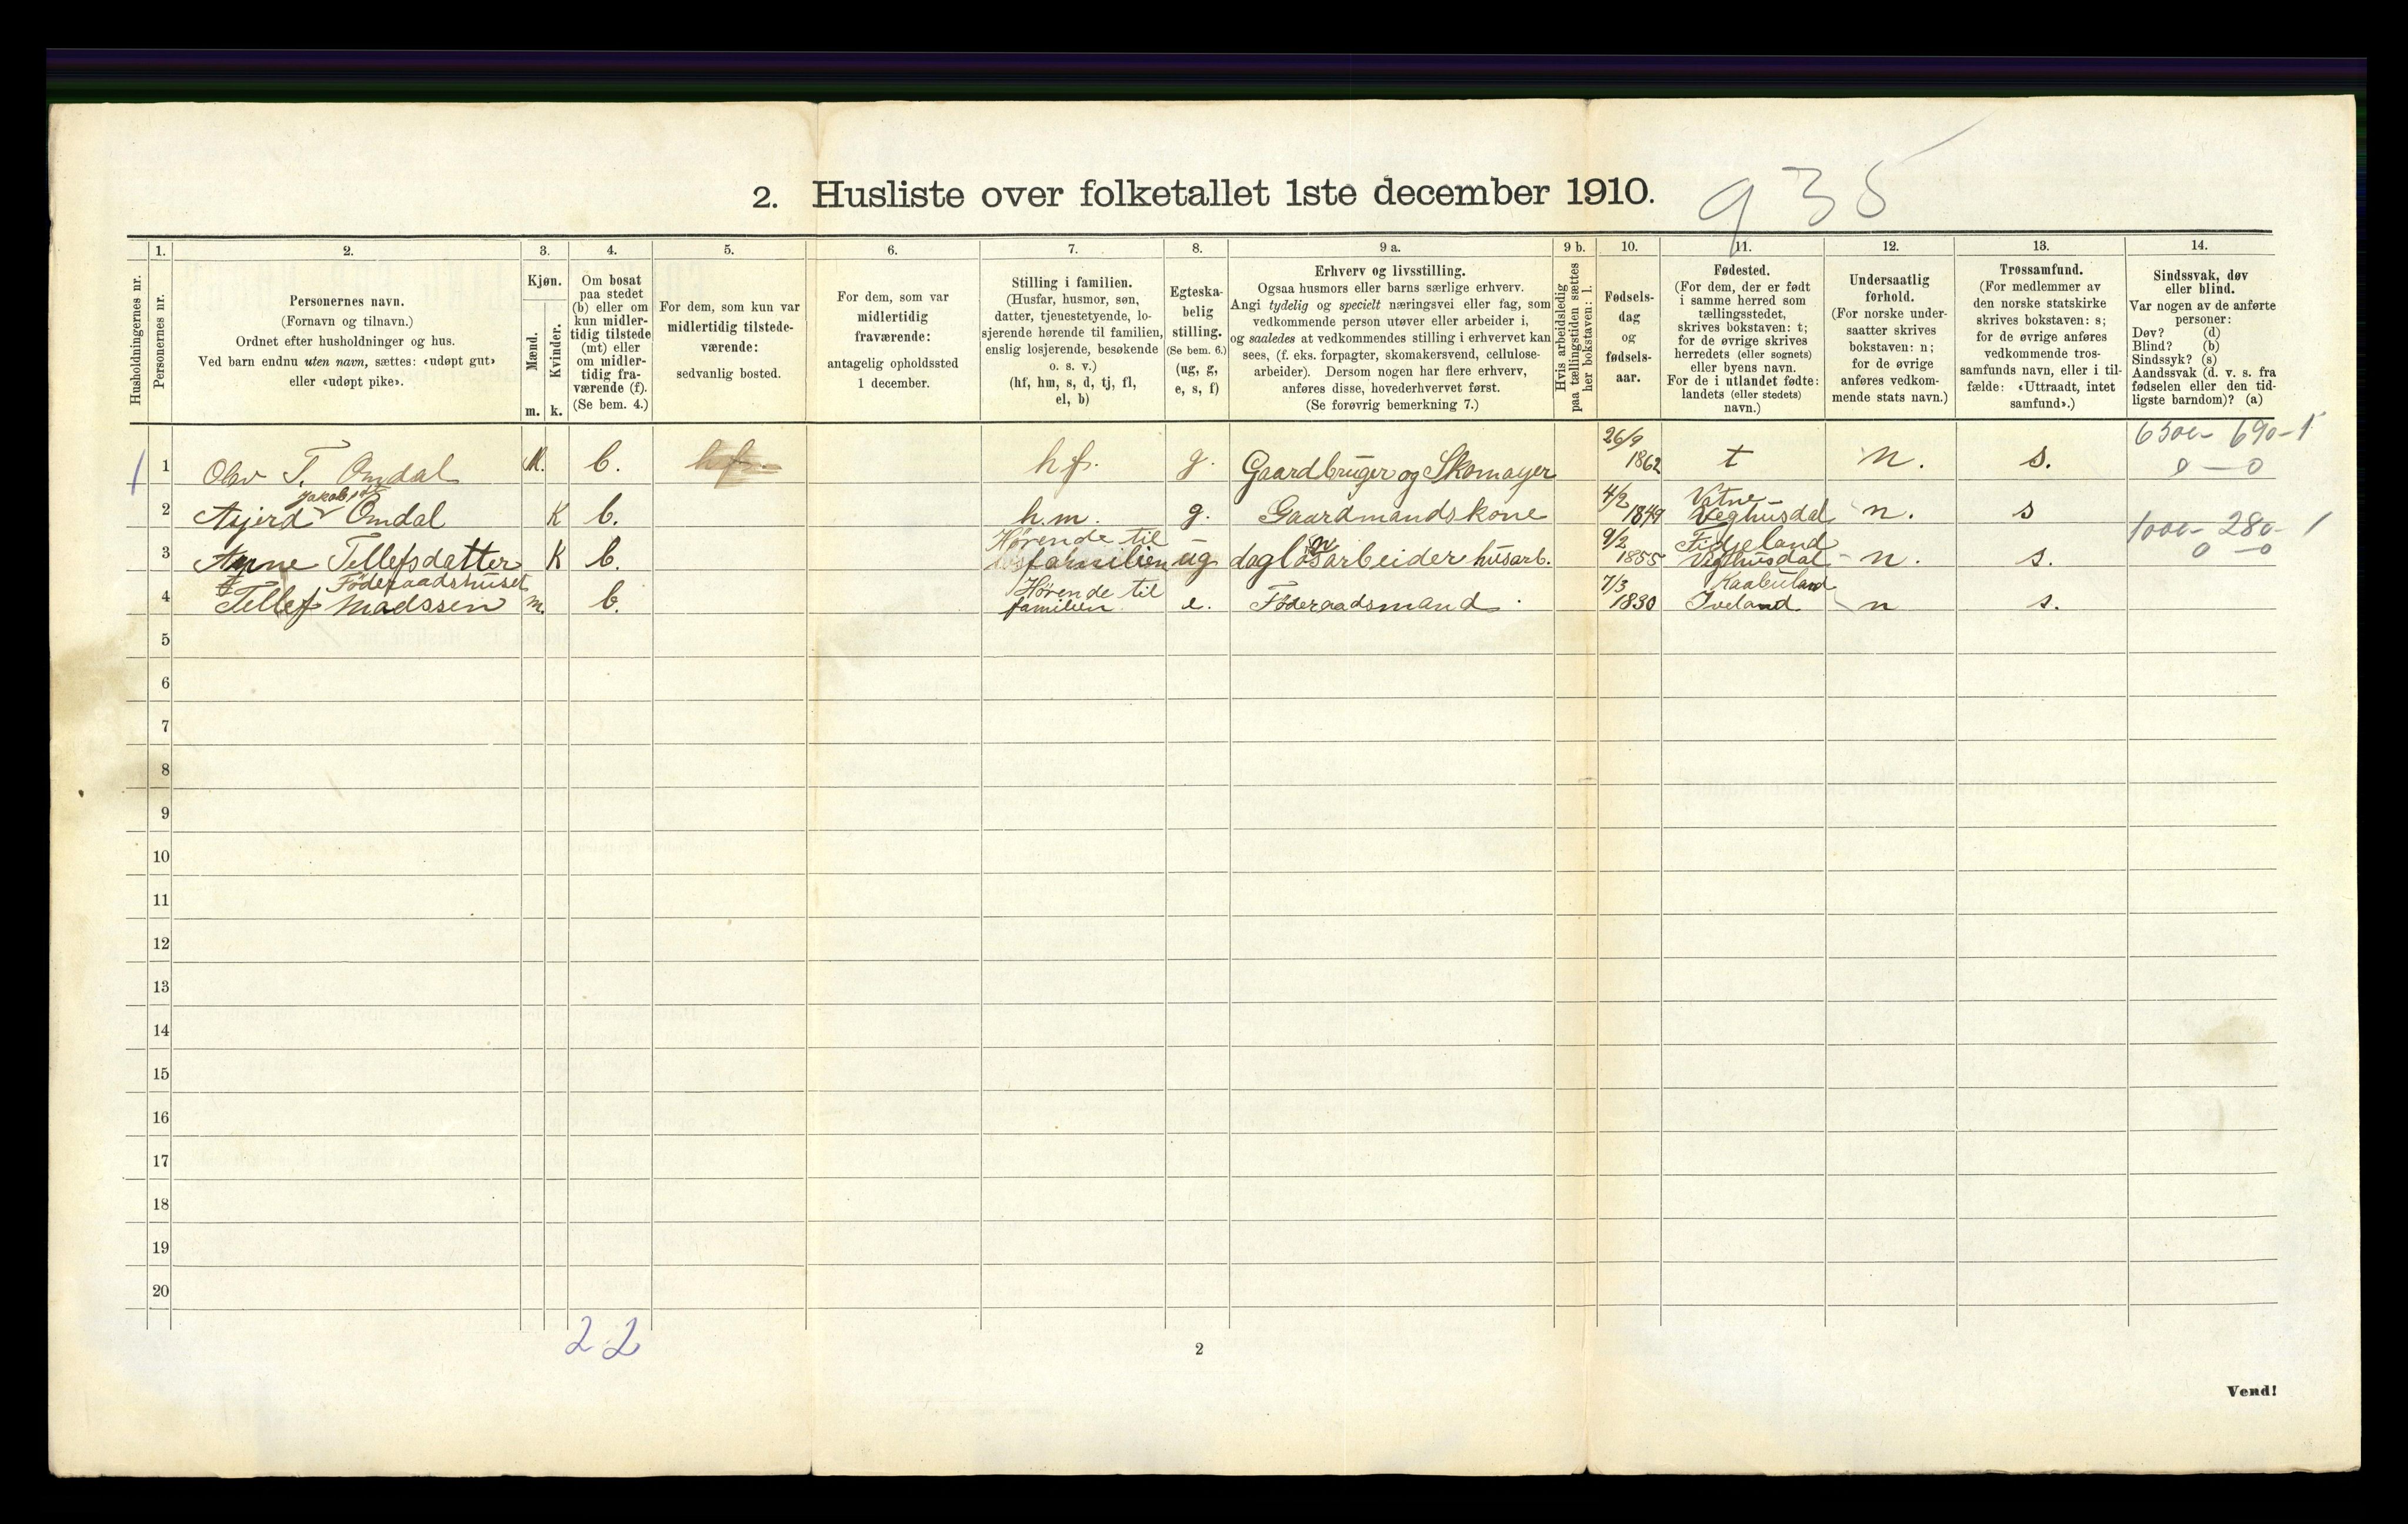 2. Husliste over folketallet 1ste december 1910. 935
Husholdningernes nr.
1.
Personernes nr.
2.
Personernes navn.
(Fornavn og tilnavn.)
Ordnet efter husholdninger og hus.
Ved barn endnu uten navn, sættes: «udøpt gut»
eller «udøpt pike».
3.
Kjøn.
Mænd.
Kvinder.
m. k.
4.
Om bosat
paa stedet
(b) eller om
kun midler-
tidig tilstede
(mt) eller
om midler-
tidig fra-
værende (f).
(Se bem. 4.)
5.
For dem, som kun var
midlertidig tilstede-
værende:
sedvanlig bosted.
6.
For dem, som var
midlertidig
fraværende:
antagelig opholdssted
1 december.
7.
Stilling i familien.
(Husfar, husmor, søn,
datter, tjenestetyende, lo-
sjerende hørende til familien,
enslig losjerende, besøkende
o. s. v.)
(hf, hm, s, d, tj, fl,
el, b)
8.
Egteska-
belig
stilling.
(Se bem. 6.)
(ug, g,
e, s, f)
9 a.
Erhverv og livsstilling.
Ogsaa husmors eller barns særlige erhverv.
Angi tydelig og specielt næringsvei eller fag, som
vedkommende person utøver eller arbeider i,
og saaledes at vedkommendes stilling i erhvervet kan
sees, (f. eks. forpagter, skomakersvend, cellulose-
arbeider). Dersom nogen har flere erhverv,
anføres disse, hovederhvervet først.
(Se forøvrig bemerkning 7.)
9 b.
Hvis arbeidsledig
paa tællingstiden sættes
her bokstaven: l.
10.
Fødsels-
dag
og
fødsels-
aar.
11.
Fødested.
(For dem, der er født
i samme herred som
tællingsstedet,
skrives bokstaven: t;
for de øvrige skrives
herredets (eller sognets)
eller byens navn.
For de i utlandet fødte:
landets (eller stedets)
navn.)
12.
Undersaatlig
forhold.
(For norske under-
saatter skrives
bokstaven: n;
for de øvrige
anføres vedkom-
mende stats navn.)
13.
Trossamfund.
(For medlemmer av
den norske statskirke
skrives bokstaven: s;
for de øvrige anføres
vedkommende tros-
samfunds navn, eller i til-
fælde: «Uttraadt, intet
samfund».)
14.
Sindssvak, døv
eller blind.
Var nogen av de anførte
personer:
Døv? (d)
Blind? (b)
Sindssyk? (s)
Aandssvak (d. v. s. fra
fødselen eller den tid-
ligste barndom)? (a)
6500- 690-1
0 - 0
1 1 Olav T. Omdal M. b. hf. hf. g. Gaardbruger og Skomager 26/9 1862 t n. s.
Jakobsdt
2 Asjerd Omdal K b. h.m. g. Gaardmandskone 4/2 1849 Vatne Veghusdal n. s
1000- 280- 1
0 - 0
3 Anne Tellefsdatter K b. Hørende til familien ug daglønsarbeider husarb. 9/2 1855 Fidjeland Veghusdal n. s.
Föderaadshuset
4 Tellef Madssen m. b. Hørende til familien e. Föderaadsmand 7/3 1830 Kaabuland Iveland n s.
5
6
7
8
9
10
11
12
13
14
15
16
17
18
19
20
2 2
2
Vend!